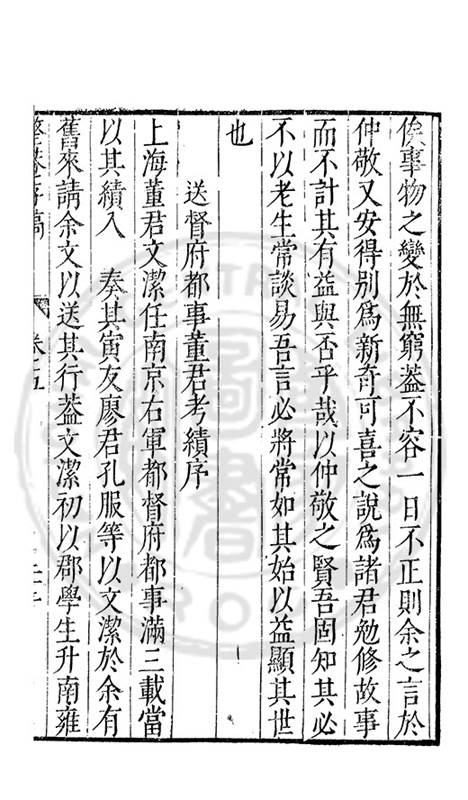 俟事物之變於無窮葢不容一日不正則余之言於
仲敬又安得別爲新奇可喜之說爲諸君勉修故事
而不計其有益與否乎哉以仲敬之賢吾固知其必
不以老生常談易吾言必將常如其始以益顯其世
也
送督府都事董君考績序
上海董君文潔任南京右軍都督府都事滿三載當
以其績入 奏其寅友廖君孔服等以文潔於余有
舊來請余文以送其行葢文潔初以郡學生升南雍